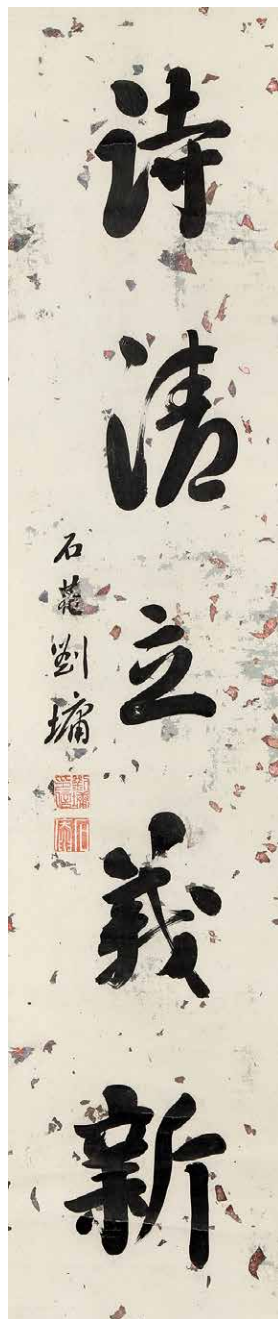 詩清立義新
石菴劉墉